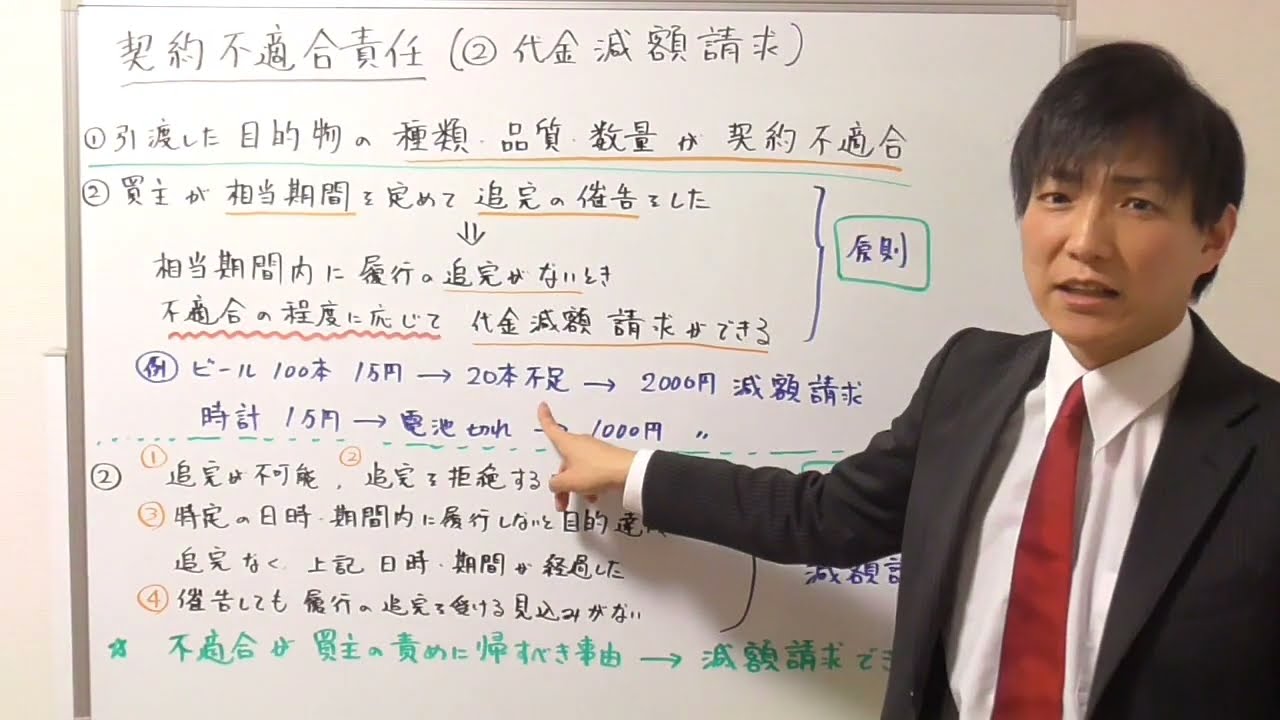 契約不適合責任（② 代金減額請求）
① 引渡した目的物の 種類・品質・数量が 契約不適合
② 買主が 相当期間を定めて 追完の催告をした
⇓
原則
相当期間内に 履行の追完がないとき
不適合の程度に応じて 代金減額請求ができる
例 ビール100本 1万円 → 20本不足 → 2000円 減額請求
時計 1万円 → 電池切れ → 1000円 〃
② ① 追完が不可能, ② 追完を拒絶する
③ 特定の日時・期間内に履行しないと目的達
追完なく 上記 日時・期間が経過した
減額
④ 催告しても 履行の追完を受ける見込みがない
☆ 不適合が 買主の責めに帰すべき事由 → 減額請求でき